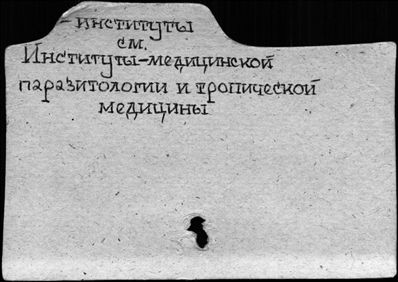 - институты
см.
Институты-медицинской
паразитологии и тропической
медицины